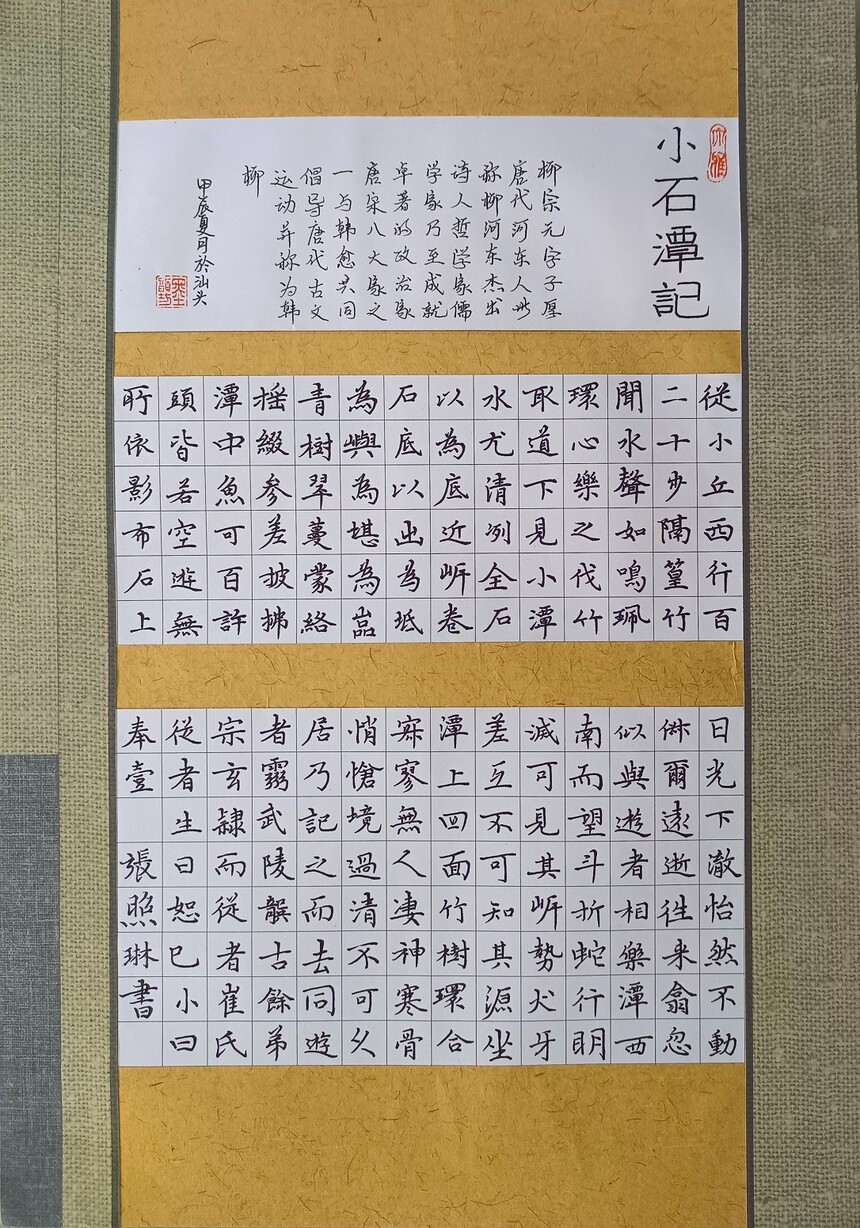 小石潭記
柳宗元字子厚
唐代河东人世
称柳河东杰出
诗人哲学家儒
学家乃至成就
卓著的政治家
唐宋八大家之
一与韩愈共同
倡导唐代古文
运动并称为韩
柳
甲辰夏月於汕头
從小丘西行百
二十步隔篁竹
聞水聲如鳴珮
環心樂之伐竹
取道下見小潭
水尤清冽全石
以為底近岍卷
石底以出為坻
為嶼為堪為嵓
青樹翠蔓蒙絡
揺綴參差披拂
潭中魚可百許
頭皆若空遊無
所依影布石上
日光下澈怡然不動
俶爾遠逝往来翕忽
似與遊者相樂潭西
南而望斗折蛇行明
滅可見其岍勢犬牙
差互不可知其源坐
潭上四面竹樹環合
寂寥無人凄神寒骨
悄愴境過清不可久
居乃記之而去同遊
者霧武陵龔古餘弟
宗玄隸而從者崔氏
從者生曰恕巳小曰
奉壹 張照琳書